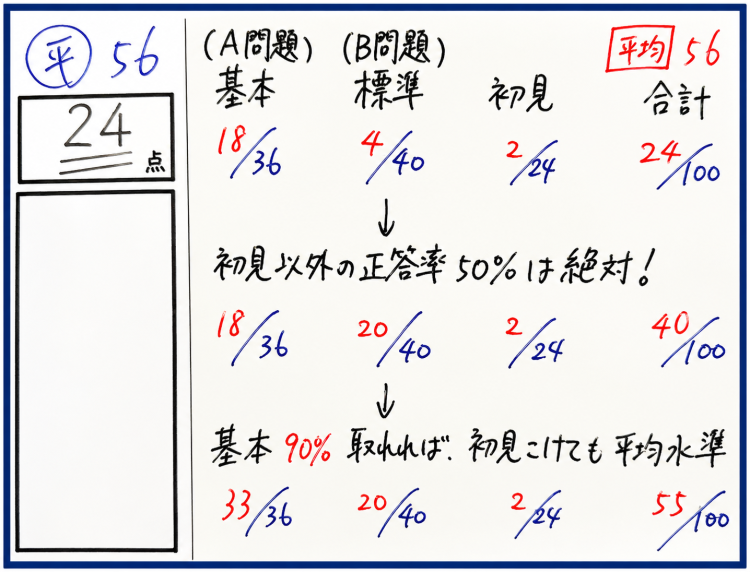 平 56
24
点
(A問題) (B問題) 平均 56
基本 標準 初見 合計
18/36 4/40 2/24 24/100
↓
初見以外の正答率50%は絶対!
18/36 20/40 2/24 40/100
↓
基本 90% 取れれば、初見こけても平均水準
33/36 20/40 2/24 55/100